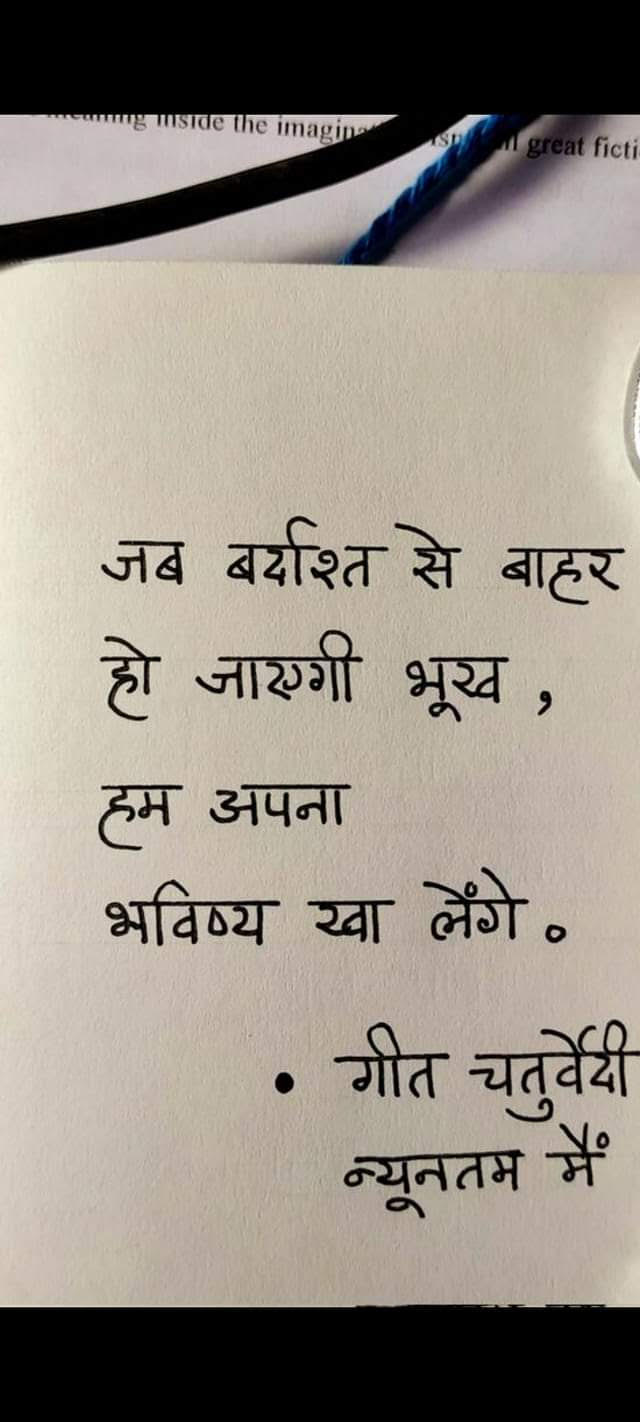 inside the imagin
great ficti
जब बर्दाश्त से बाहर
हो जाएगी भूख ,
हम अपना
भविष्य खा लेंगे ॰
• गीत चतुर्वेदी
न्यूनतम मैं